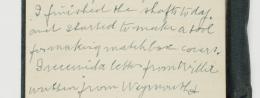 I finished the shafts today
and started to make a tool
for making matchbox covers.
I received a letter from Willie
written from Weymouth